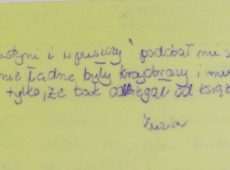 ustyni i w puszczy" podobał mi s
nie ładne były krajobrazy i mu
tylko, że tak odbiegał od książ
Zuzia